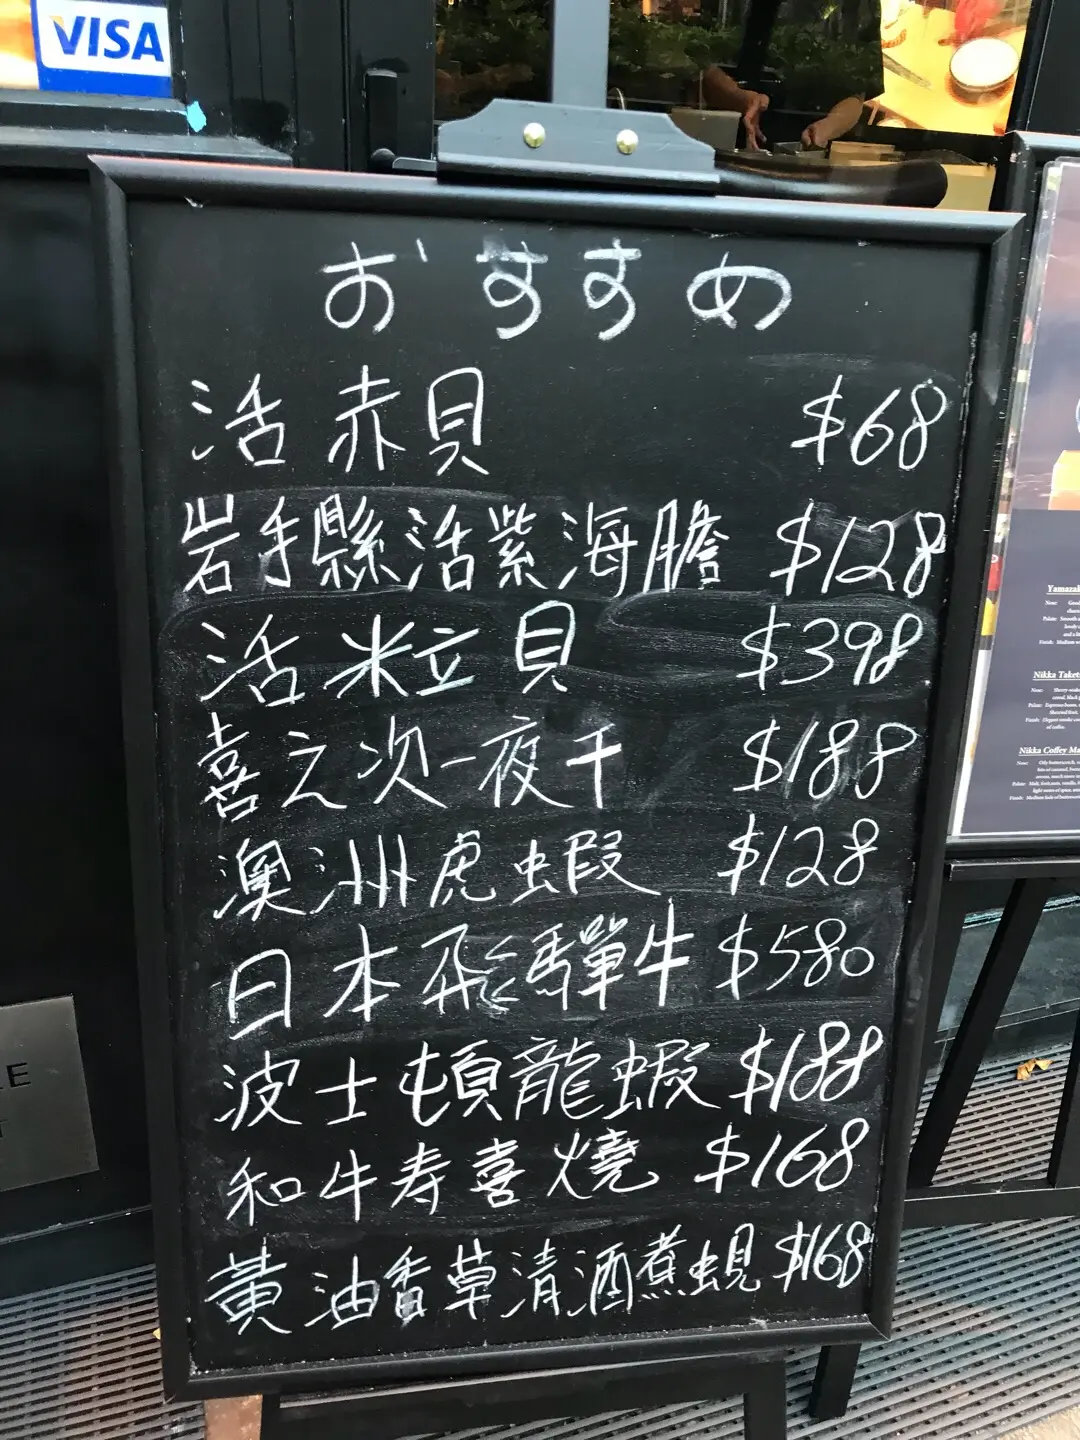 VISA
おすすめ
活赤貝 $68
岩手縣活紫海膽 $128
活粒貝 $398
喜之次一夜干 $188
澳洲虎蝦 $128
日本飛禪牛 $580
波士頓龍蝦 $188
和牛寿喜燒 $168
黃油香草清酒煮蜆 $168
Nikka Coffey Ma